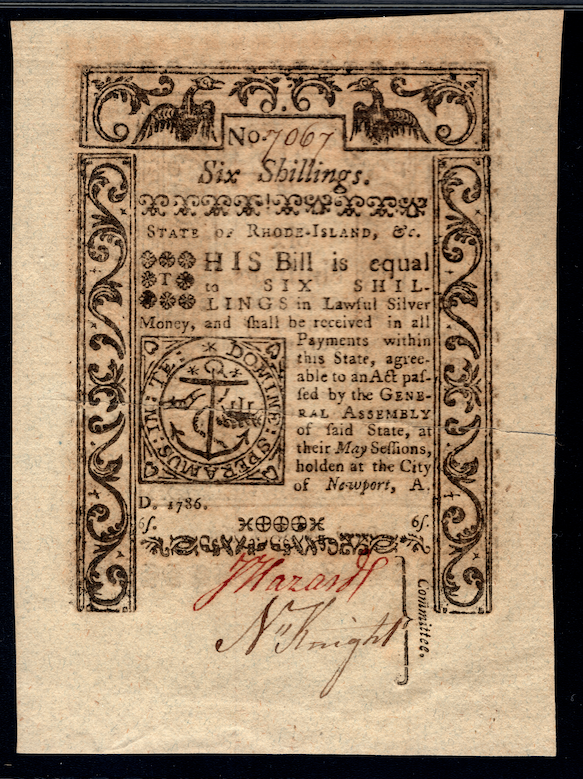 No. 7067
Six Shillings.
STATE OF RHODE-ISLAND, &c.
THIS Bill is equal
to SIX SHIL-
LINGS in Lawful Silver
Money, and ſhall be received in all
Payments within
this State, agree-
able to an Act paſ-
ſed by the GENE-
RAL ASSEMBLY
of ſaid State, at
their May Seſſions,
holden at the City
of Newport, A.
D. 1786.
IN: TE: DOMINE: SPERAMUS:
6ſ. 6ſ.
J Hazard
Nn Knight
Committee.